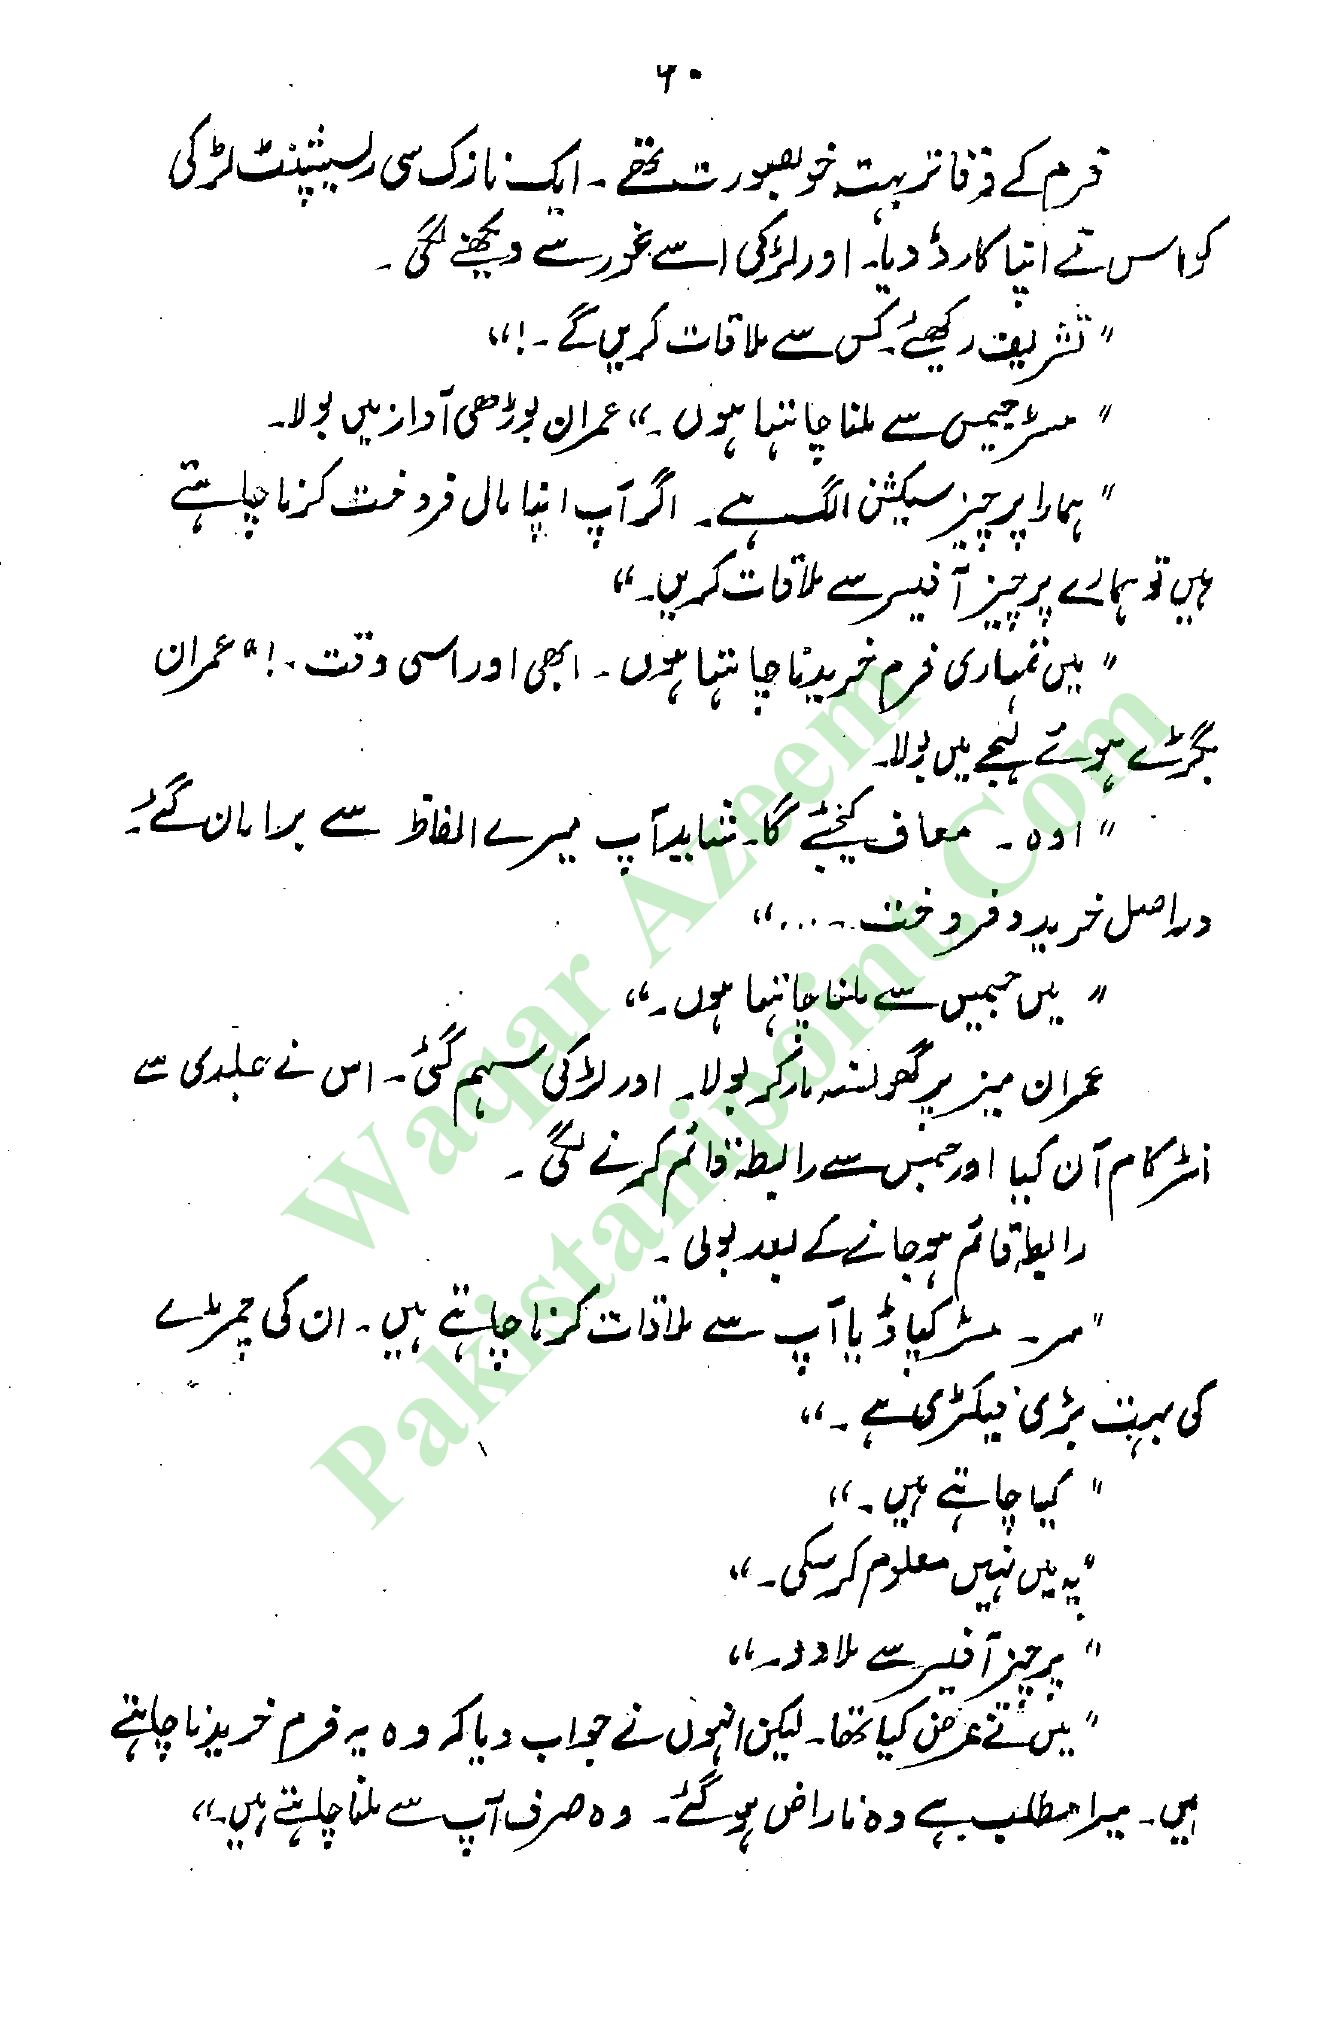 ۶۰
فرم کے دفاتر بہت خوبصورت تھے۔ ایک نازک سی رسیپشنسٹ لڑکی
کو اس نے اپنا کارڈ دیا۔ اور لڑکی اسے غور سے دیکھنے لگی۔
"تشریف رکھیئے۔ کس سے ملاقات کریں گے۔!"
"مسٹر جیمس سے ملنا چاہتا ہوں۔" عمران بوڑھی آواز میں بولا۔
"ہمارا پرچیز سیکشن الگ ہے۔ اگر آپ اپنا مال فروخت کرنا چاہتے
ہیں تو ہمارے پرچیز آفیسر سے ملاقات کریں۔"
"میں تمہاری فرم خریدنا چاہتا ہوں۔ ابھی اور اسی وقت۔!" عمران
بگڑے ہوئے لہجے میں بولا۔
"اوہ۔ معاف کیجئے گا۔ شاید آپ میرے الفاظ سے برا مان گئے۔
دراصل خرید و فروخت۔..."
"میں جیمس سے ملنا چاہتا ہوں۔"
عمران میز پر گھونسہ مار کر بولا۔ اور لڑکی سہم گئی۔ اس نے جلدی سے
انٹرکام آن کیا اور جیمس سے رابطہ قائم کرنے لگی۔
رابطہ قائم ہو جانے کے بعد بولی۔
"سر۔ مسٹر کپاڈیا آپ سے ملاقات کرنا چاہتے ہیں۔ ان کی چمڑے
کی بہت بڑی فیکٹری ہے۔"
"کیا چاہتے ہیں۔"
"یہ میں نہیں معلوم کر سکی۔"
"پرچیز آفیسر سے ملا دو۔"
"میں نے عرض کیا تھا۔ لیکن انہوں نے جواب دیا کہ وہ یہ فرم خریدنا چاہتے
ہیں۔ میرا مطلب ہے وہ ناراض ہو گئے۔ وہ صرف آپ سے ملنا چاہتے ہیں۔"
Waqar Azeem
Pakistanipoint.Com